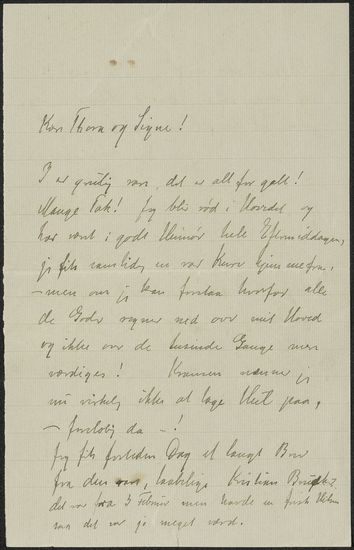 Kære Thora og Signe!
I er gruelig rare, det er alt for galt!
Mange Tak! Jeg blir rød i Hovedet og
har været i godt Humør hele Eftermiddagen,
jeg fik samtidig en rar Kurv hjemmefra,
– men om jeg kan forstaa hvorfor alle
de Goder regner ned over mit Hoved
og ikke over de tusinde Gange mere
værdiges! Kransen nænner jeg
nu virkelig ikke at tage Hul paa,
– foreløbig da –!
Jeg fik forleden Dag et langt Brev
fra den rare, Kristian
det var fra 3 Februar men havde en frisk
saa det var jo meget værd.